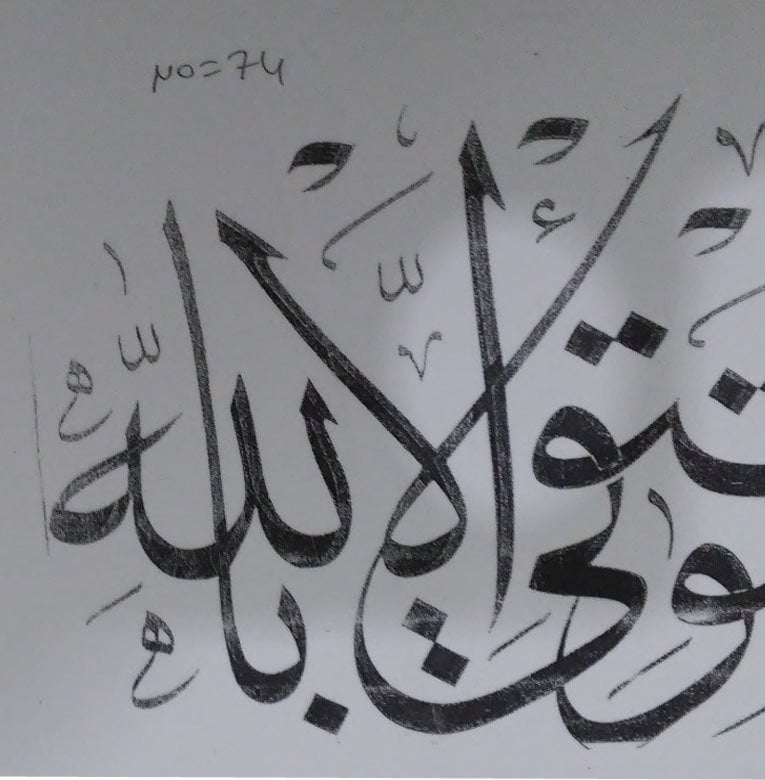 no=74
توفيقي إلا بالله